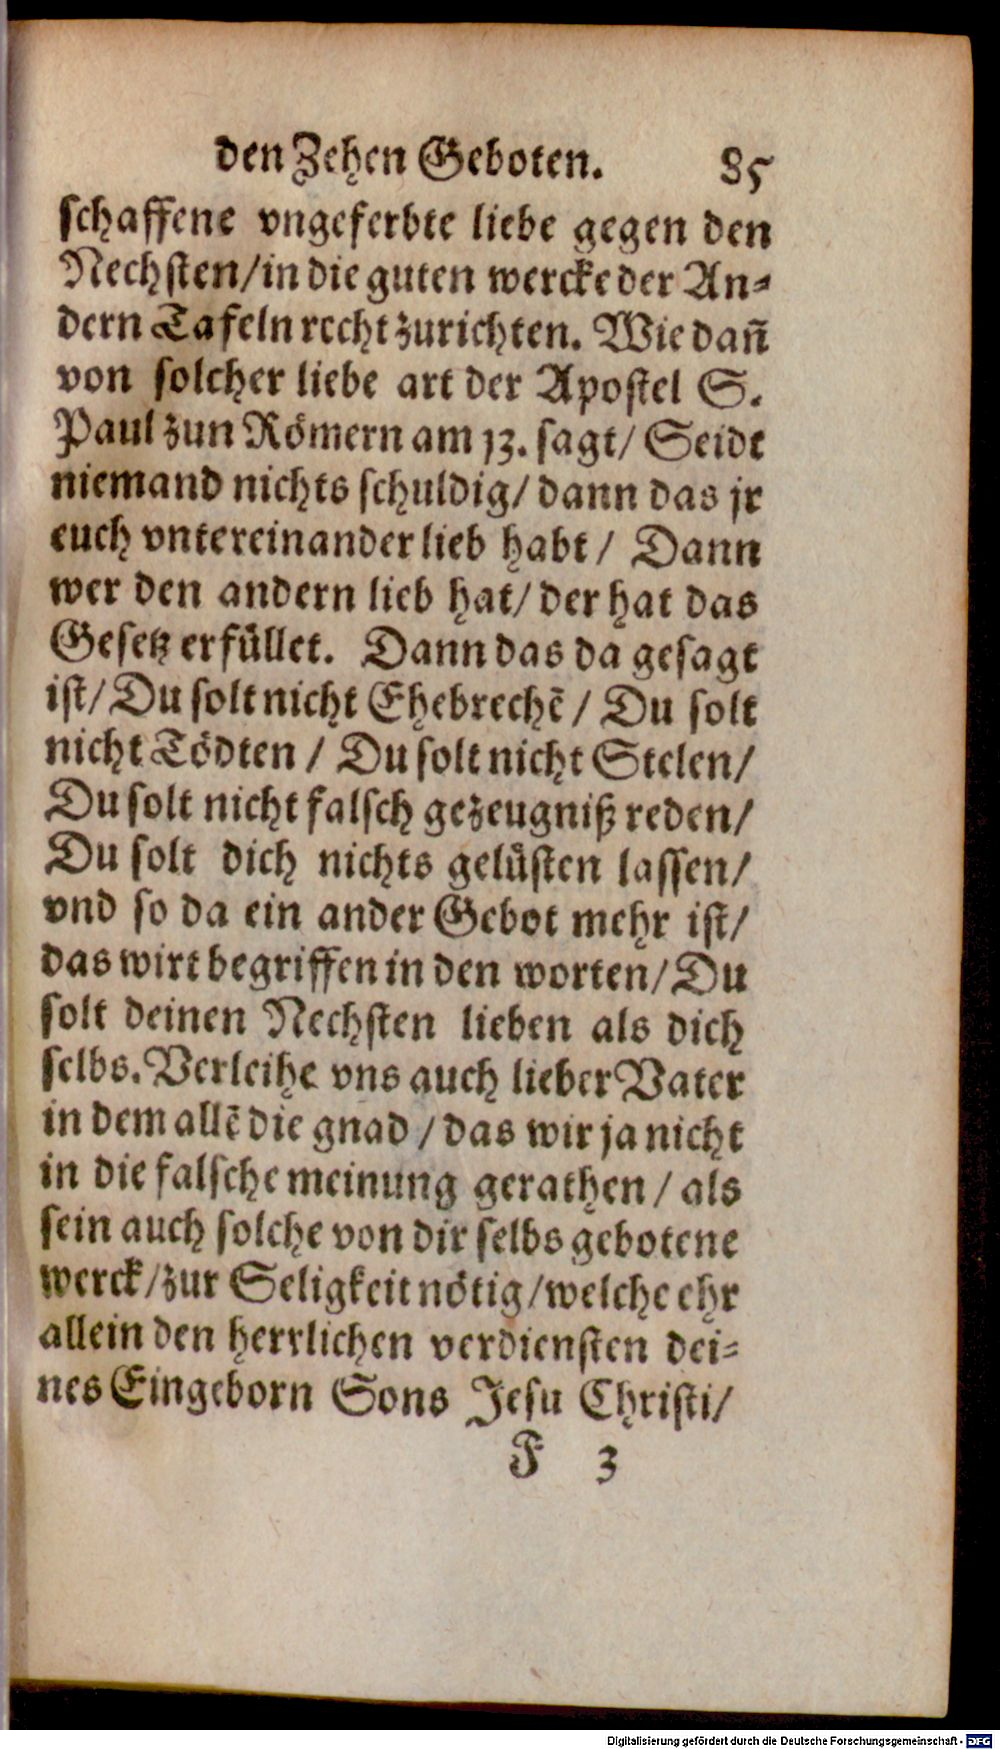 den Zehen Geboten. 85
schaffene vngeferbte liebe gegen den
Nechsten/in die guten wercke der An-
dern Tafeln recht zurichten. Wie dañ
von solcher liebe art der Apostel S.
Paul zun Römern am 13. sagt/ Seidt
niemand nichts schuldig/ dann das jr
euch vntereinander lieb habt / Dann
wer den andern lieb hat/ der hat das
Gesetz erfüllet. Dann das da gesagt
ist/ Du solt nicht Ehebrechẽ / Du solt
nicht Tödten / Du solt nicht Stelen/
Du solt nicht falsch gezeugniß reden/
Du solt dich nichts gelüsten lassen/
vnd so da ein ander Gebot mehr ist/
das wirt begriffen in den worten/ Du
solt deinen Nechsten lieben als dich
selbs. Verleihe vns auch lieber Vater
in dem allẽ die gnad / das wir ja nicht
in die falsche meinung gerathen / als
sein auch solche von dir selbs gebotene
werck/zur Seligkeit nötig/welche ehr
allein den herrlichen verdiensten dei-
nes Eingeborn Sons Jesu Christi/
F 3
Digitalisierung gefördert durch die Deutsche Forschungsgemeinschaft - DFG